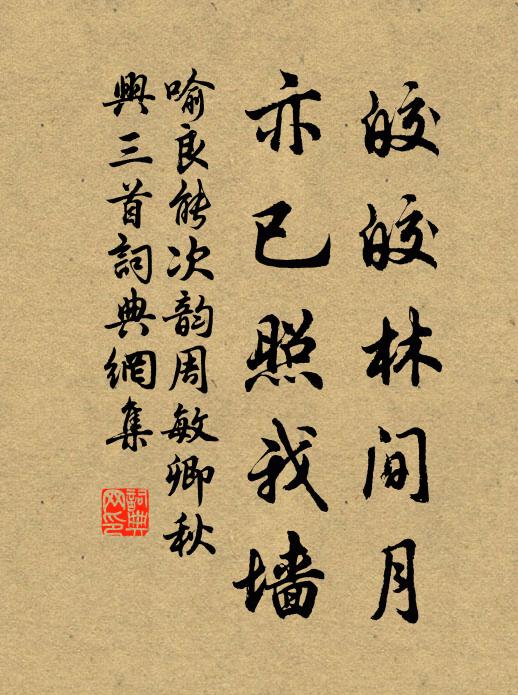 皎皎林间月
亦已照我墙
喻良能次韵周敏卿秋
興三首詞典網集
詞典
网印